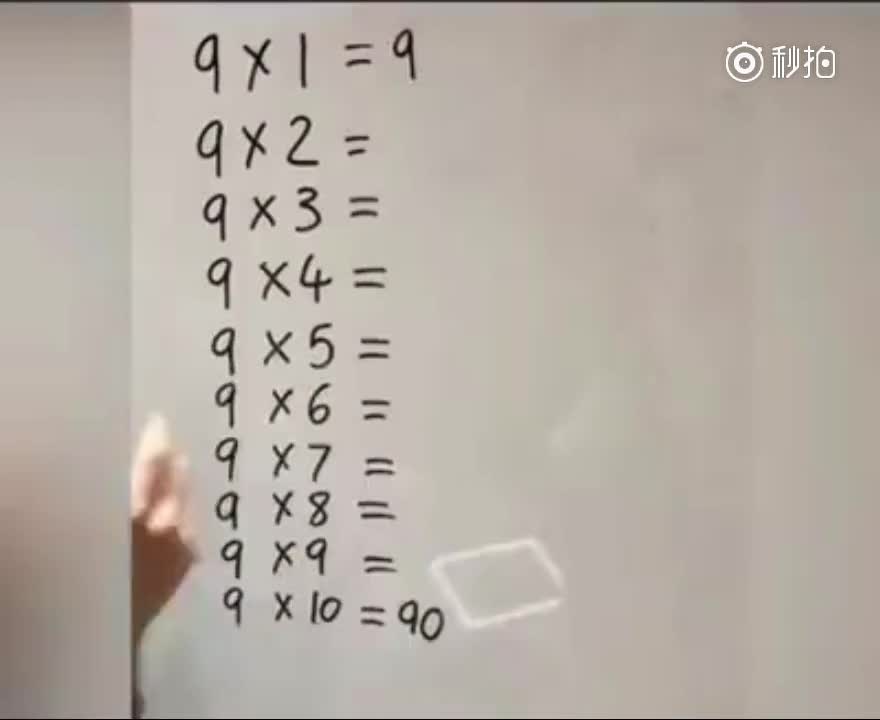 秒拍
9 × 1 = 9
9 × 2 =
9 × 3 =
9 × 4 =
9 × 5 =
9 × 6 =
9 × 7 =
9 × 8 =
9 × 9 =
9 × 10 = 90